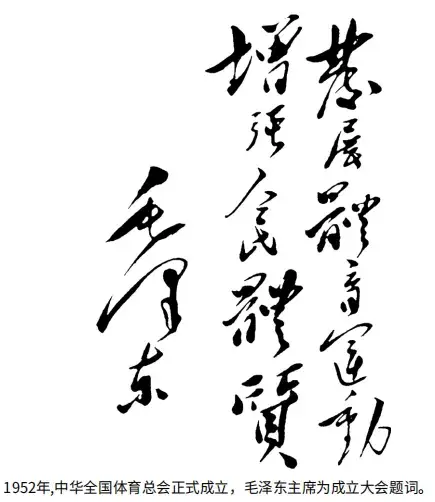 發展體育運動
增强人民體質
毛泽东
1952年,中华全国体育总会正式成立，毛泽东主席为成立大会题词。